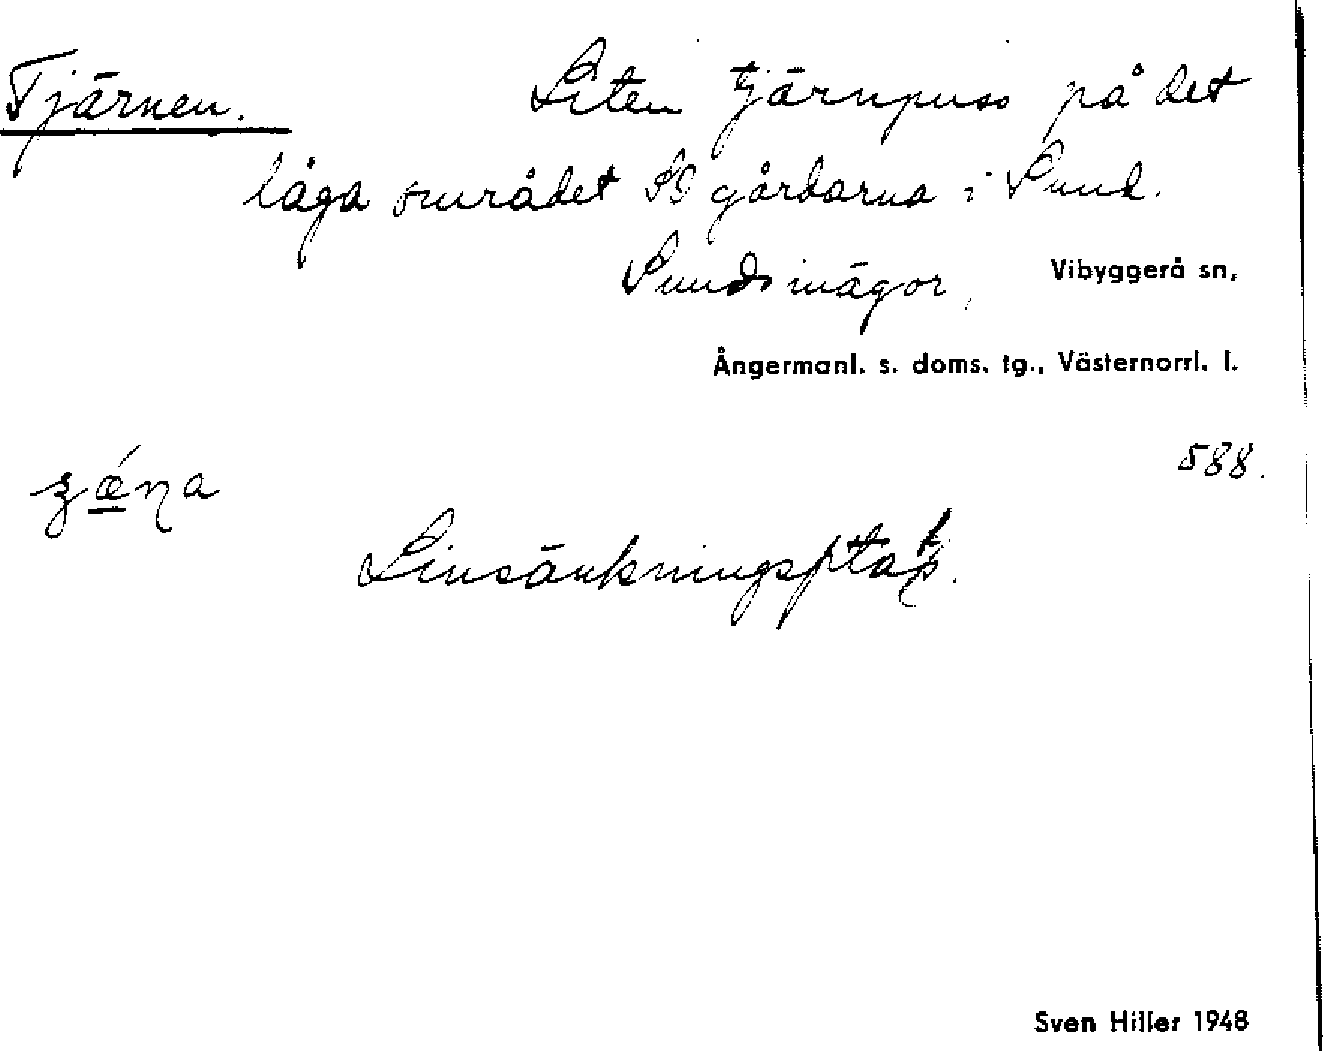 Tjärnen. Liten tjärnpuss på det
låga området SO gårdarna i Sund.
Sunds inägor, Vibyggerå sn,
Ångermanl. s. doms. tg., Västernorrl. l.
588.
Linsänkningsplats.
Sven Hiller 1948